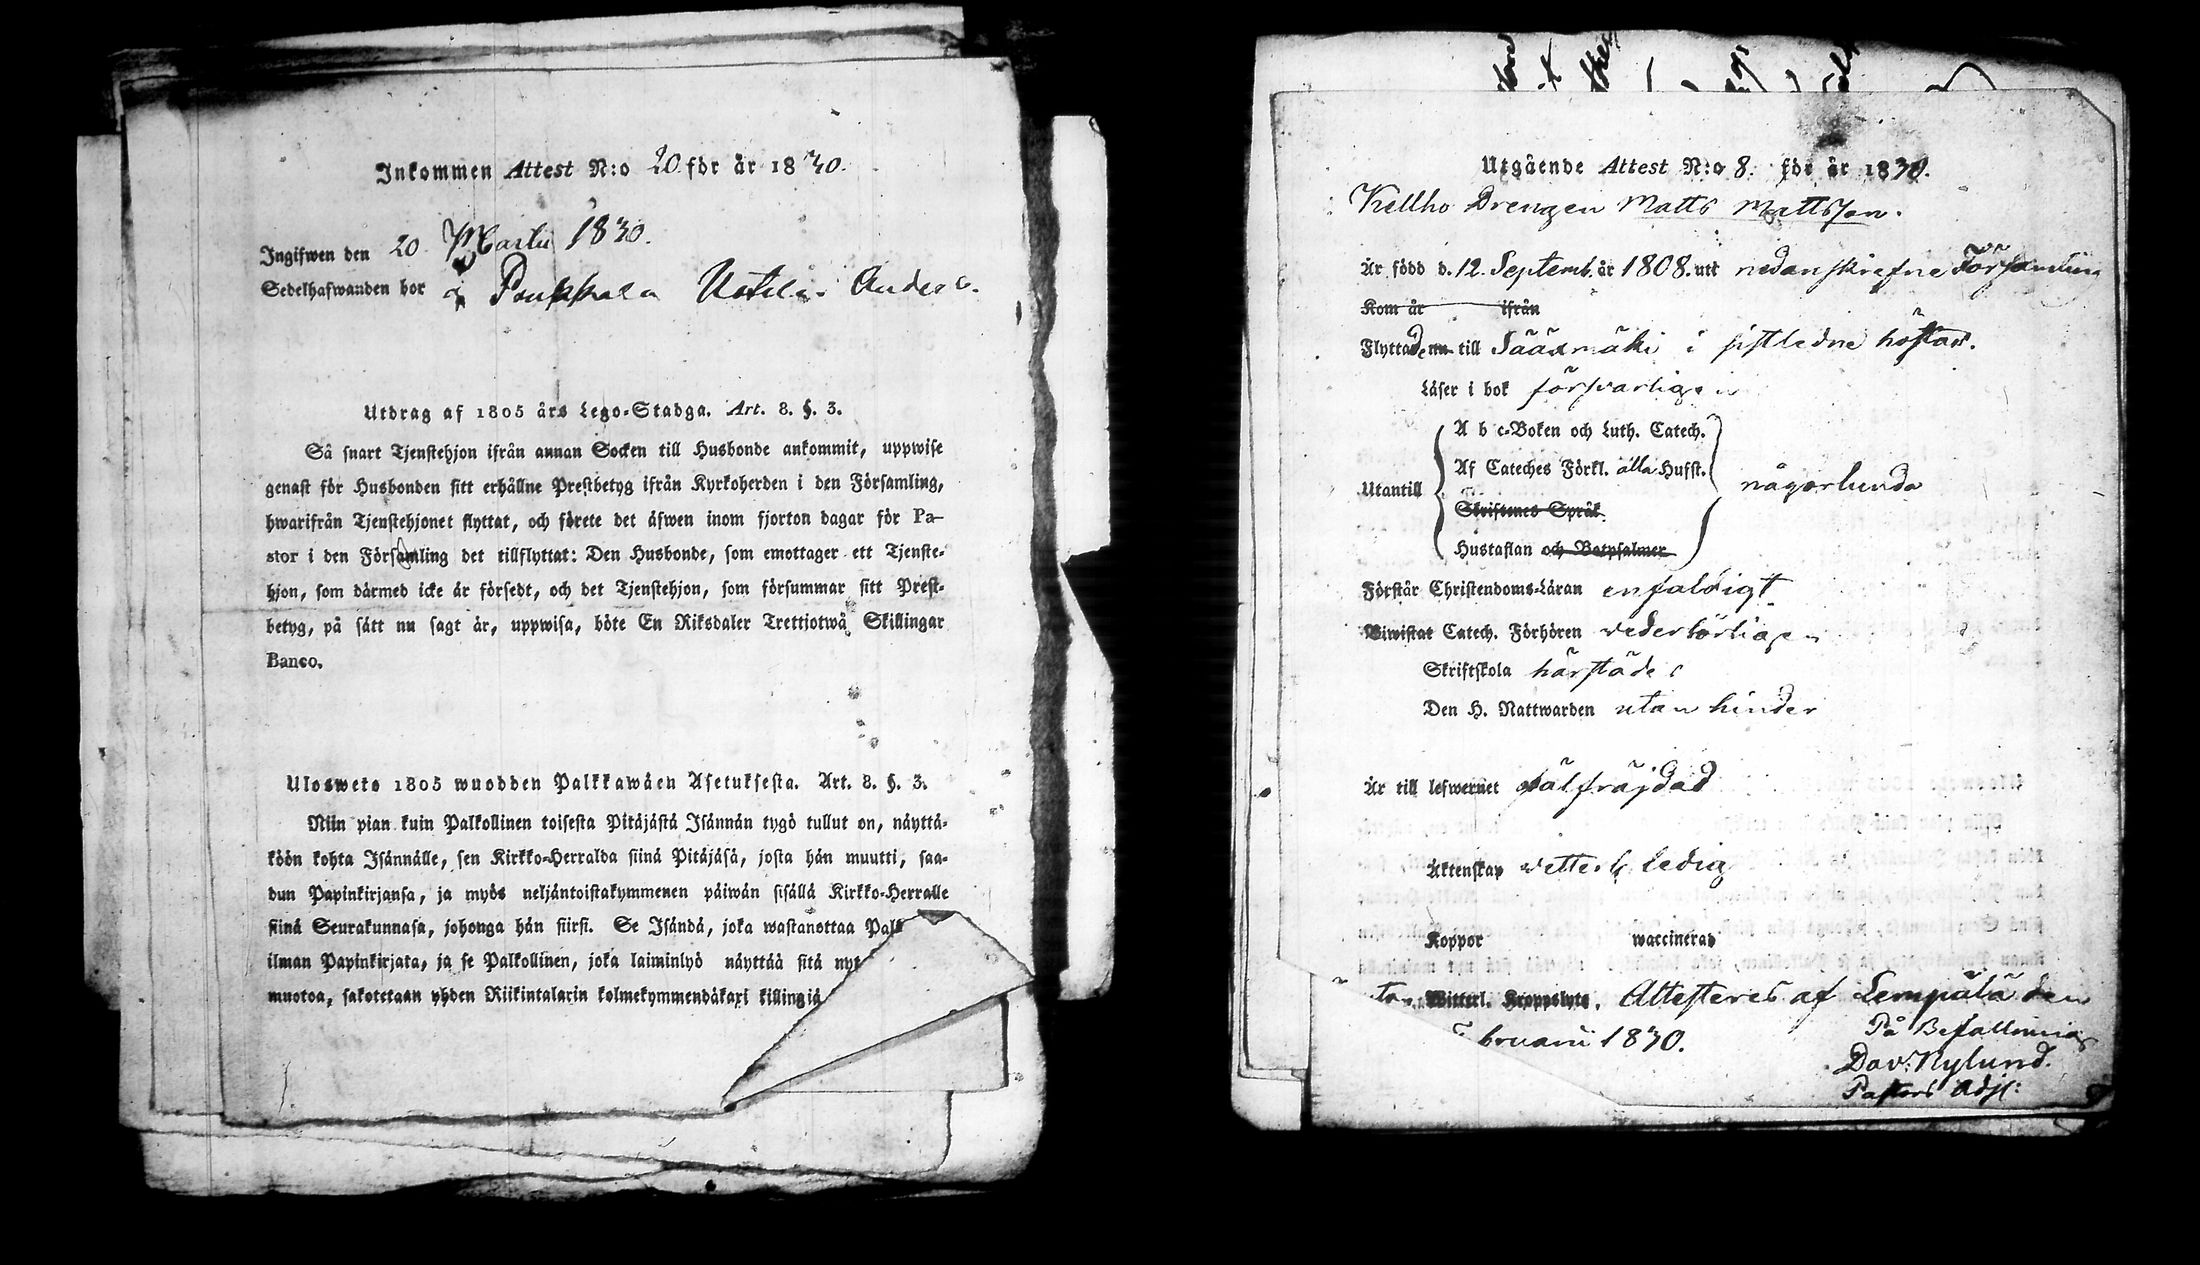 Inkommen Attest N:o 20 för år 1830.
Ingifwen den 20 Martii 1830.
Sedelhafwanden bor i Pruppala Uotila Anders.
Utdrag af 1805 års Lego-Stadga. Art. 8. §. 3.
Så snart Tjenstehjon ifrån annan Socken till Husbonde ankommit, uppwise
genast för Husbonden sitt erhållne Prestbetyg ifrån Kyrkoherden i den Församling,
hwarifrån Tjenstehjonet flyttat, och förete det äfwen inom fjorton dagar för Pa-
stor i den Församling det tillflyttat: Den Husbonde, som emottager ett Tjenste-
hjon, som därmed icke är försedt, och det Tjenstehjon, som försummar sitt Prest-
betyg, på sätt nu sagt är, uppwisa, böte En Riksdaler Trettiotwå Skillingar
Banco.
Ulosweto 1805 wuodden Palkkawäen Asetuksesta. Art. 8. §. 3.
Niin pian kuin Palkollinen toisesta Pitäjästä Isännän tygö tullut on, näyttä-
köön kohta Isännälle, sen Kirkko-Herralda siinä Pitäjäsä, josta hän muutti, saa-
dun Papinkirjansa, ja myös neljäntoistakymmenen päiwän sisällä Kirkko-Herralle
siinä Seurakunnasa, johonga hän siirsi. Se Isändä, joka wastanottaa Palk
ilman Papinkirjata, ja se Palkollinen, joka laiminlyö näyttää sitä nyt
muotoa, sakotetaan yhden Riikintalarin kolmekymmendäkaxi killingiä
Utgående Attest N:o 8. för år 1830.
Kellho Drengen Matts Mattsson.
Är född d. 12. Septemb. år 1808. uti nedanskrefne Församling
Kom år ifrån
Flyttade nu till Sääxmäki i sistledne höstas.
Läser i bok försvarligen
Utantill
A b c-Boken och Luth. Catech.
Af Cateches Förkl. alla Hufst.
Skriftenes Språk
Hustaflan och Botpsalmer
någorlunda
Förstår Christendoms-Läran enfaldigt
Biwistat Catech. Förhören vederbörligen
Skriftskola härstädes
Den H. Nattwarden utan hinder
Är till lefwernet välfräjdad
Äktenskap vetterl. ledig
Koppor waccinerad
Witterl. Kroppslyte. Attesteres af Lempälä den
bruarii 1830.
På Befallning
Dav: Nylund.
Pastors Adj: